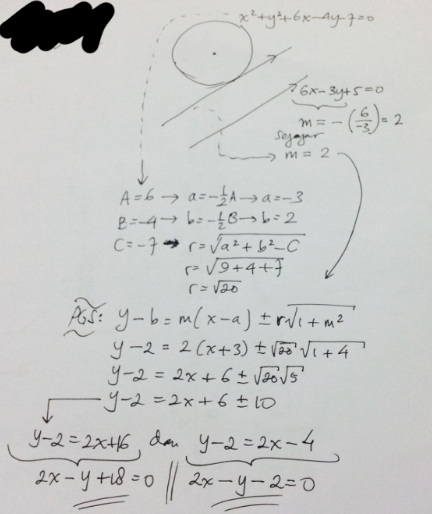 x²+y²+6x-4y-7=0
6x-3y+5=0
m = -(6/-3) = 2
sejajar
m = 2
A=6 → a=-½A → a=-3
B=-4 → b=-½B → b=2
C=-7 → r=√(a²+b²-C)
r=√(9+4+7)
r=√20
PGS: y-b = m(x-a) ± r√(1+m²)
y-2 = 2(x+3) ± √20 √(1+4)
y-2 = 2x+6 ± √20√5
y-2 = 2x+6 ± 10
y-2=2x+16 dan y-2=2x-4
2x-y+18=0 || 2x-y-2=0